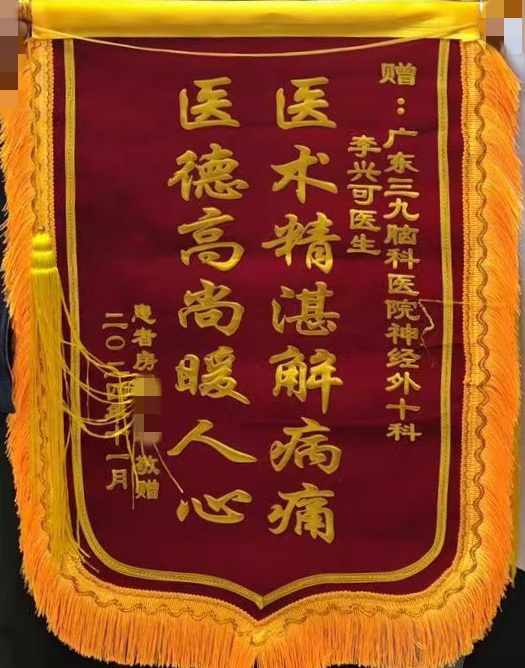 赠：广东三九脑科医院神经外十科
李兴可医生
医术精湛解病痛
医德高尚暖人心
患者房 敬赠
二〇二 年十一月